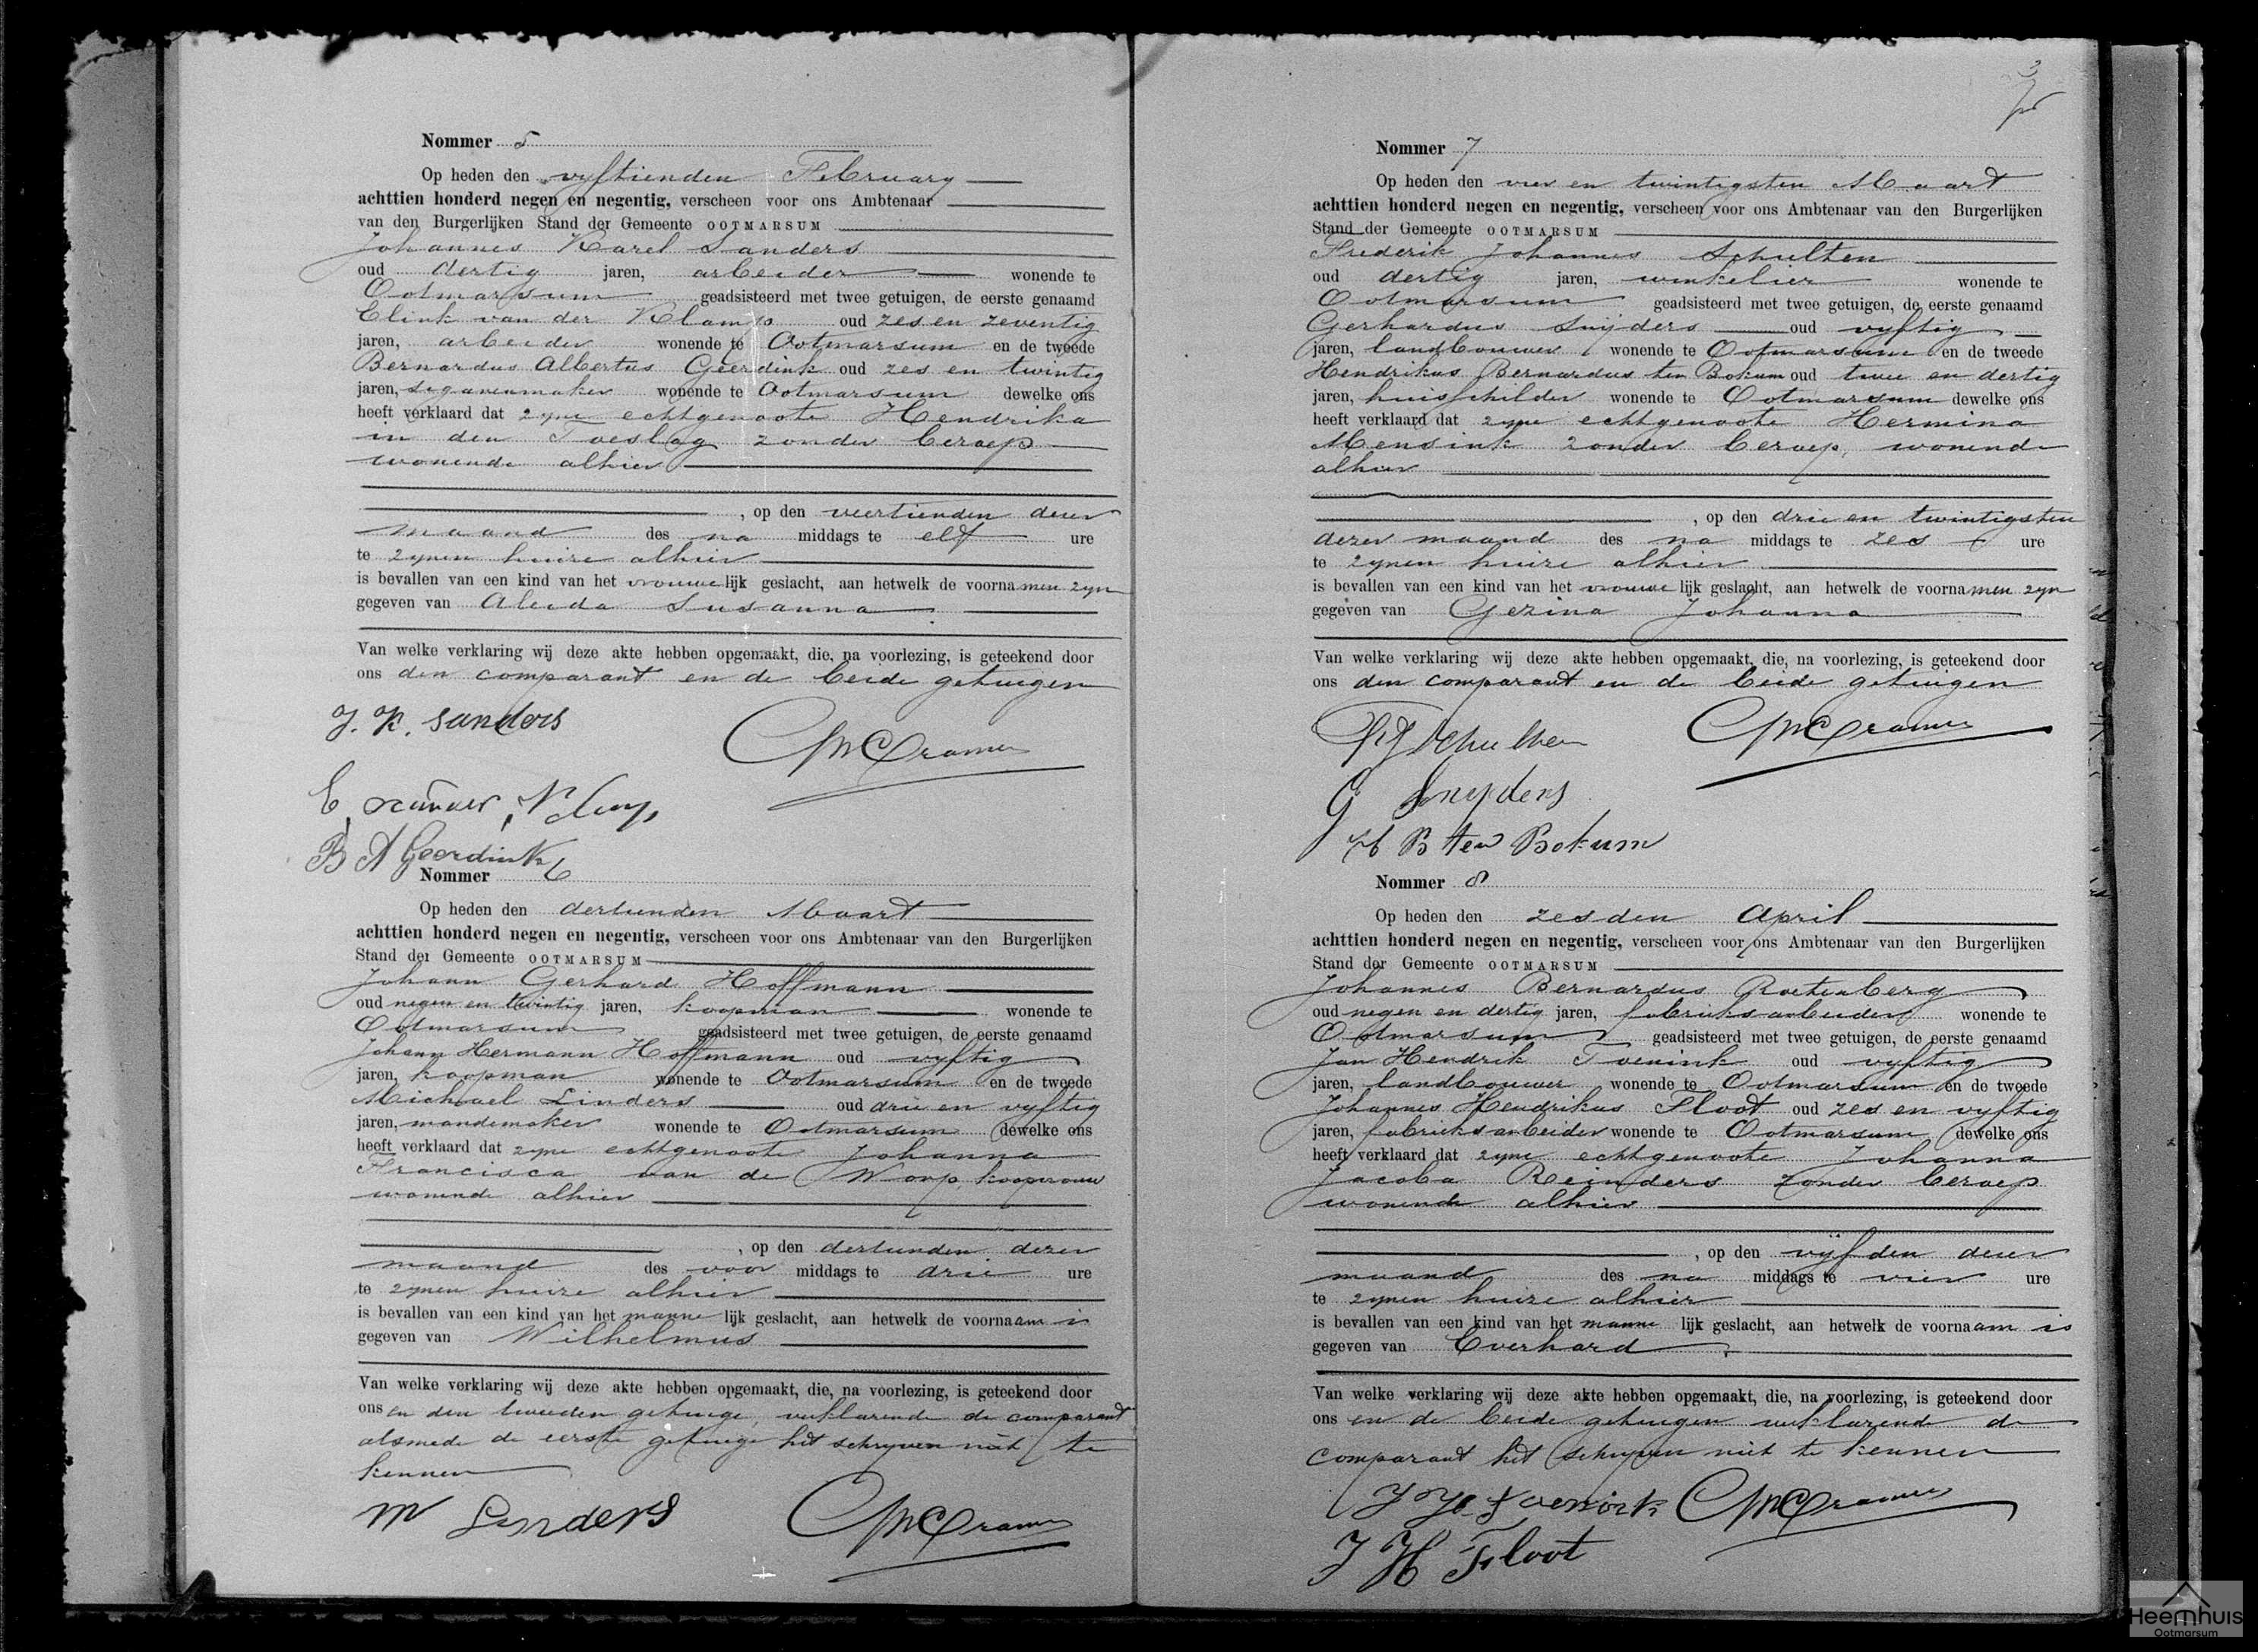 Nommer 5
Op heden den vyftienden February
achttien honderd negen en negentig, verscheen voor ons Ambtenaar
van den Burgerlijken Stand der Gemeente OOTMARSUM
Johannes Karel Sanders
oud dertig jaren, arbeider wonende te
Ootmarsum geadsisteerd met twee getuigen, de eerste genaamd
Elink van der Klamp oud zes en zeventig
jaren, arbeider wonende te Ootmarsum en de tweede
Bernardus Albertus Geerdink oud zes en twintig
jaren, sigarenmaker wonende te Ootmarsum dewelke ons
heeft verklaard dat zyne echtgenoote Hendrika
in den Toeslag zonder beroep
wonende alhier
, op den veertienden dezer
maand des na middags te elf ure
te zynen huize alhier
is bevallen van een kind van het vrouwelijk geslacht, aan hetwelk de voornamen zyn
gegeven van Aleida Susanna
Van welke verklaring wij deze akte hebben opgemaakt, die, na voorlezing, is geteekend door
ons den comparant en de beide getuigen
J. K. Sanders
CMCramer
B A Geerdink
Nommer 6
Op heden den dertienden Maart
achttien honderd negen en negentig, verscheen voor ons Ambtenaar van den Burgerlijken
Stand der Gemeente OOTMARSUM
Johann Gerhard Hoffmann
oud negen en twintig jaren, koopman wonende te
Ootmarsum geadsisteerd met twee getuigen, de eerste genaamd
Johann Hermann Hoffmann oud vyftig
jaren, koopman wonende te Ootmarsum en de tweede
Michael Linders oud drie en vyftig
jaren, mandemaker wonende te Ootmarsum dewelke ons
heeft verklaard dat zyne echtgenoote Johanna
Francisca van de Worp koopvrouw
wonende alhier
, op den dertienden dezer
maand des voor middags te drie ure
te zynen huize alhier
is bevallen van een kind van het mannelijk geslacht, aan hetwelk de voornaam is
gegeven van Wilhelmus
Van welke verklaring wij deze akte hebben opgemaakt, die, na voorlezing, is geteekend door
ons en den tweeden getuige, verklarende de comparant
alsmede de eerste getuige het schryven niet te
kennen
M Linders CMCramer
3
Nommer 7
Op heden den vier en twintigsten Maart
achttien honderd negen en negentig, verscheen voor ons Ambtenaar van den Burgerlijken
Stand der Gemeente OOTMARSUM
Frederik Johannes Schulten
oud dertig jaren, winkelier wonende te
Ootmarsum geadsisteerd met twee getuigen, de eerste genaamd
Gerhardus Snijders oud vyftig
jaren, landbouwer wonende te Ootmarsum en de tweede
Hendrikus Bernardus ten Bokum oud twee en dertig
jaren, huisschilder wonende te Ootmarsum dewelke ons
heeft verklaard dat zyne echtgenoote Hermina
Mensink zonder beroep, wonende
alhier
, op den drie en twintigsten
dezer maand des na middags te zes ure
te zynen huize alhier
is bevallen van een kind van het vrouwelijk geslacht, aan hetwelk de voornamen zyn
gegeven van Gezina Johanna
Van welke verklaring wij deze akte hebben opgemaakt, die, na voorlezing, is geteekend door
ons den comparant en de beide getuigen
FJSchulten CMCramer
G Snyders
H B ten Bokum
Nommer 8
Op heden den zesden April
achttien honderd negen en negentig, verscheen voor ons Ambtenaar van den Burgerlijken
Stand der Gemeente OOTMARSUM
Johannes Bernardus Roetenberg
oud negen en dertig jaren, fabrieksarbeider wonende te
Ootmarsum geadsisteerd met twee getuigen, de eerste genaamd
Jan Hendrik Toenink oud vyftig
jaren, landbouwer wonende te Ootmarsum en de tweede
Johannes Hendrikus Floot oud zes en vyftig
jaren, fabrieksarbeider wonende te Ootmarsum dewelke ons
heeft verklaard dat zyne echtgenoote Johanna
Jacoba Reinders zonder beroep
wonende alhier
, op den vijfden dezer
maand des na middags te vier ure
te zynen huize alhier
is bevallen van een kind van het mannelijk geslacht, aan hetwelk de voornaam is
gegeven van Everhard
Van welke verklaring wij deze akte hebben opgemaakt, die, na voorlezing, is geteekend door
ons en de beide getuigen verklarende de
comparant het schryven niet te kennen
J H Toenink CMCramer
J H Floot
Heemhuis
Ootmarsum